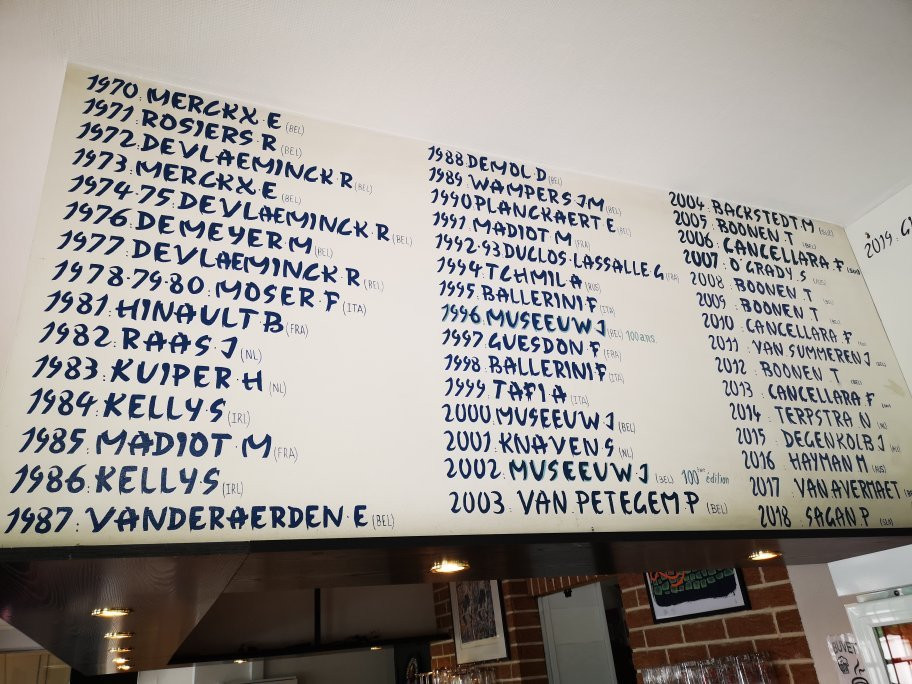 1970. MERCKX. E (BEL)
1971. ROSIERS. R (BEL)
1972. DEVLAEMINCK R (BEL)
1973. MERCKX. E (BEL)
1974.75. DEVLAEMINCK. R (BEL)
1976. DEMEYER. M (BEL)
1977. DEVLAEMINCK. R (BEL)
1978.79.80. MOSER. F (ITA)
1981. HINAULT. B (FRA)
1982. RAAS J (NL)
1983. KUIPER. H (NL)
1984. KELLY. S (IRL)
1985. MADIOT. M (FRA)
1986. KELLY. S (IRL)
1987. VANDERAERDEN. E (BEL)
1988 DEMOL. D (BEL)
1989. WAMPERS JM (BEL)
1990 PLANCKAERT E (BEL)
1991. MADIOT M (FRA)
1992.93 DUCLOS. LASSALLE G (FRA)
1994 TCHMIL. A (RUS)
1995. BALLERINI F (ITA)
1996. MUSEEUW J (BEL) 100 ans
1997. GUESDON. F (FRA)
1998. BALLERINI F (ITA)
1999. TAFI. A (ITA)
2000. MUSEEUW. J (BEL)
2001. KNAVEN S (NL)
2002. MUSEEUW J (BEL) 100ème édition
2003. VAN PETEGEM. P (BEL)
2004. BACKSTEDT. M
2005. BOONEN. T
2006. CANCELLARA. F
2007. O'GRADY S
2008. BOONEN. T
2009. BOONEN T
2010. CANCELLARA F
2011. VAN SUMMEREN J
2012. BOONEN T
2013. CANCELLARA F
2014. TERPSTRA N
2015. DEGENKOLB. J
2016. HAYMAN M (AUS)
2017. VAN AVERMAET
2018. SAGAN. P
2019. G